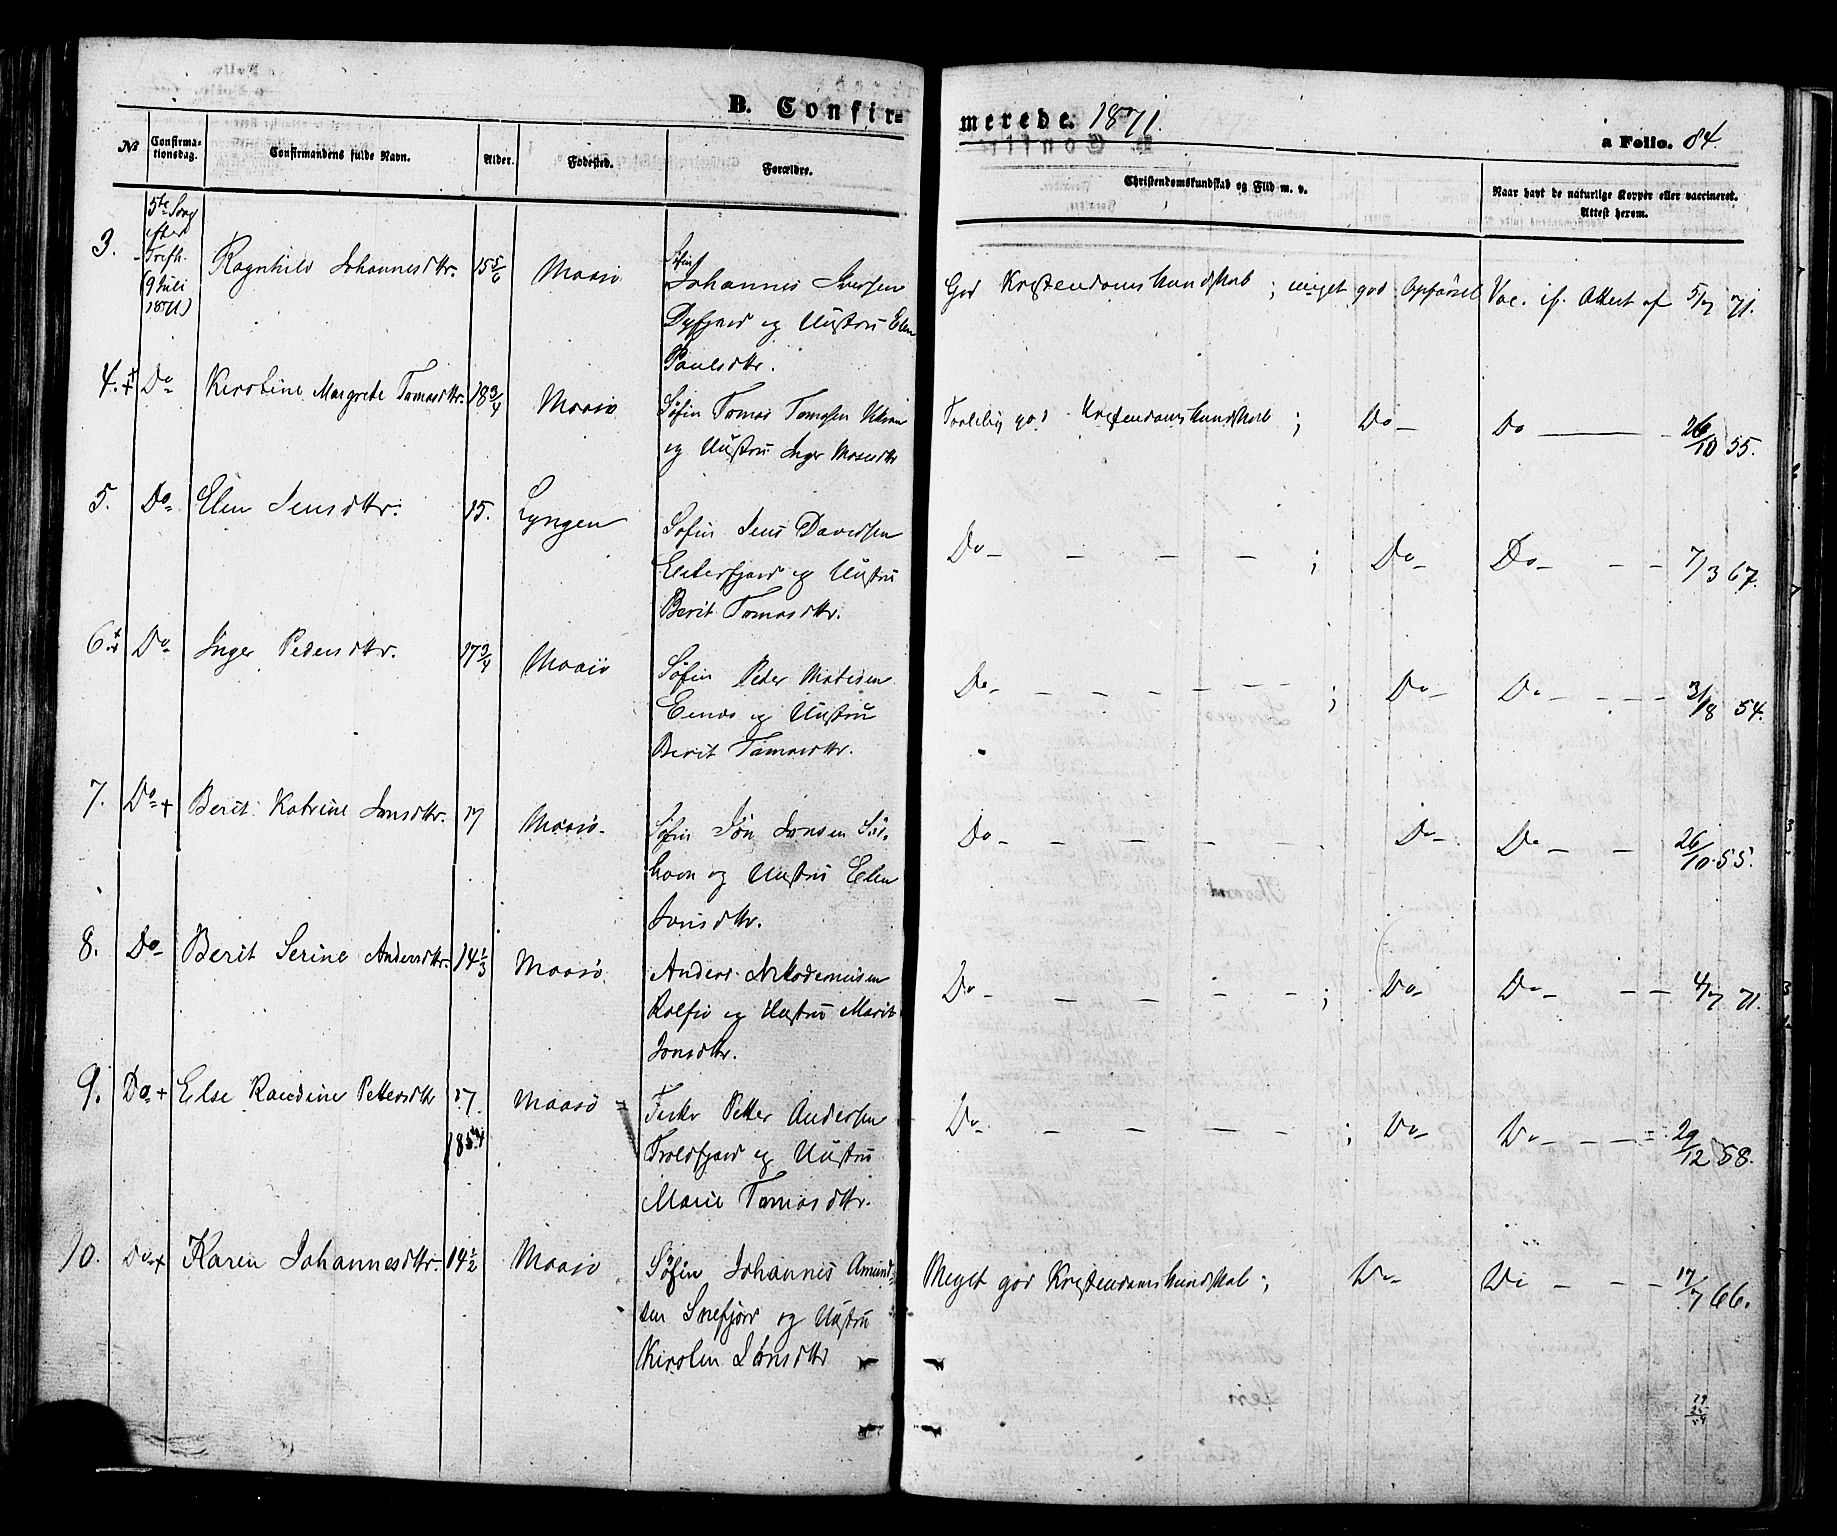 B. Confir=
merede. 1871.
a Folio. 84.
No
Confirma-
tionsdag.
Confirmandens fulde Navn.
Alder.
Fødested.
Forældre.
Christendomskundskab og Flid m. v.
Naar havt de naturlige Kopper eller vaccineret.
Attest herom.
3.
5te Søng
efter
Trefh.
(9 Juli
1871)
Ragnhild Johannesdttr.
15 5/6
Maasø
Søfin
Johannes Iversen
Dyfjord og Hustru Elen
Paulsdttr.
God Kristendomskundskab ; meget god Opførsel
Vac. if. Attest af 5/7 71.
4. +
Do
Kirstine Margrete Tomasdttr.
18 3/4
Maasø
Søfin Tomas Tomassen
og Hustru Inger Mosesdttr
Taalelig god Kristendomskundskab ; Do —
Do — 26/10 55.
5.
Do
Elen Jensdttr.
15.
Lyngen
Søfin Jens Davidsen
og Hustru
Berit Tomasdttr.
Do — — — — ; Do —
Do — — — 7/3 67.
6 +
Do
Inger Pedersdttr.
17 3/4
Maasø
Søfin Peder Matisen
og Hustru
Berit Tomasdttr.
Do — — — — — — ; Do —
Do — — — — 3/8 54.
7.
Do +
Berit Katrine Jonsdttr.
17
Maasø
Søfin Jon Jonsen
havn og Hustru Elen
Jonsdttr.
Do — — — — — Do —
Do — — 26/10 55.
8.
Do
Berit Serine Andersdttr.
14 1/3
Maasø
Anders Nikodemusen
Rolfsø og Hustru Marit
Jonsdttr.
Do — — — — — ; Do —
Do — — — 4/7 71.
9.
Do +
Else Randine Pettersdttr
17.
1854
Maasø
Petter Andersen
Troldfjord og Hustru
Marie Tomasdttr.
Do — — — — — ; Do —
Do — — — 29/12 58.
10.
Do +
Karen Johannesdttr.
14 1/2
Maasø
Søfin Johannes Amund-
sen Snefjord og Hustru
Kirsten Jonsdttr
Meget god Kristendomskundskab ; Do —
Do — — — 17/7 66.